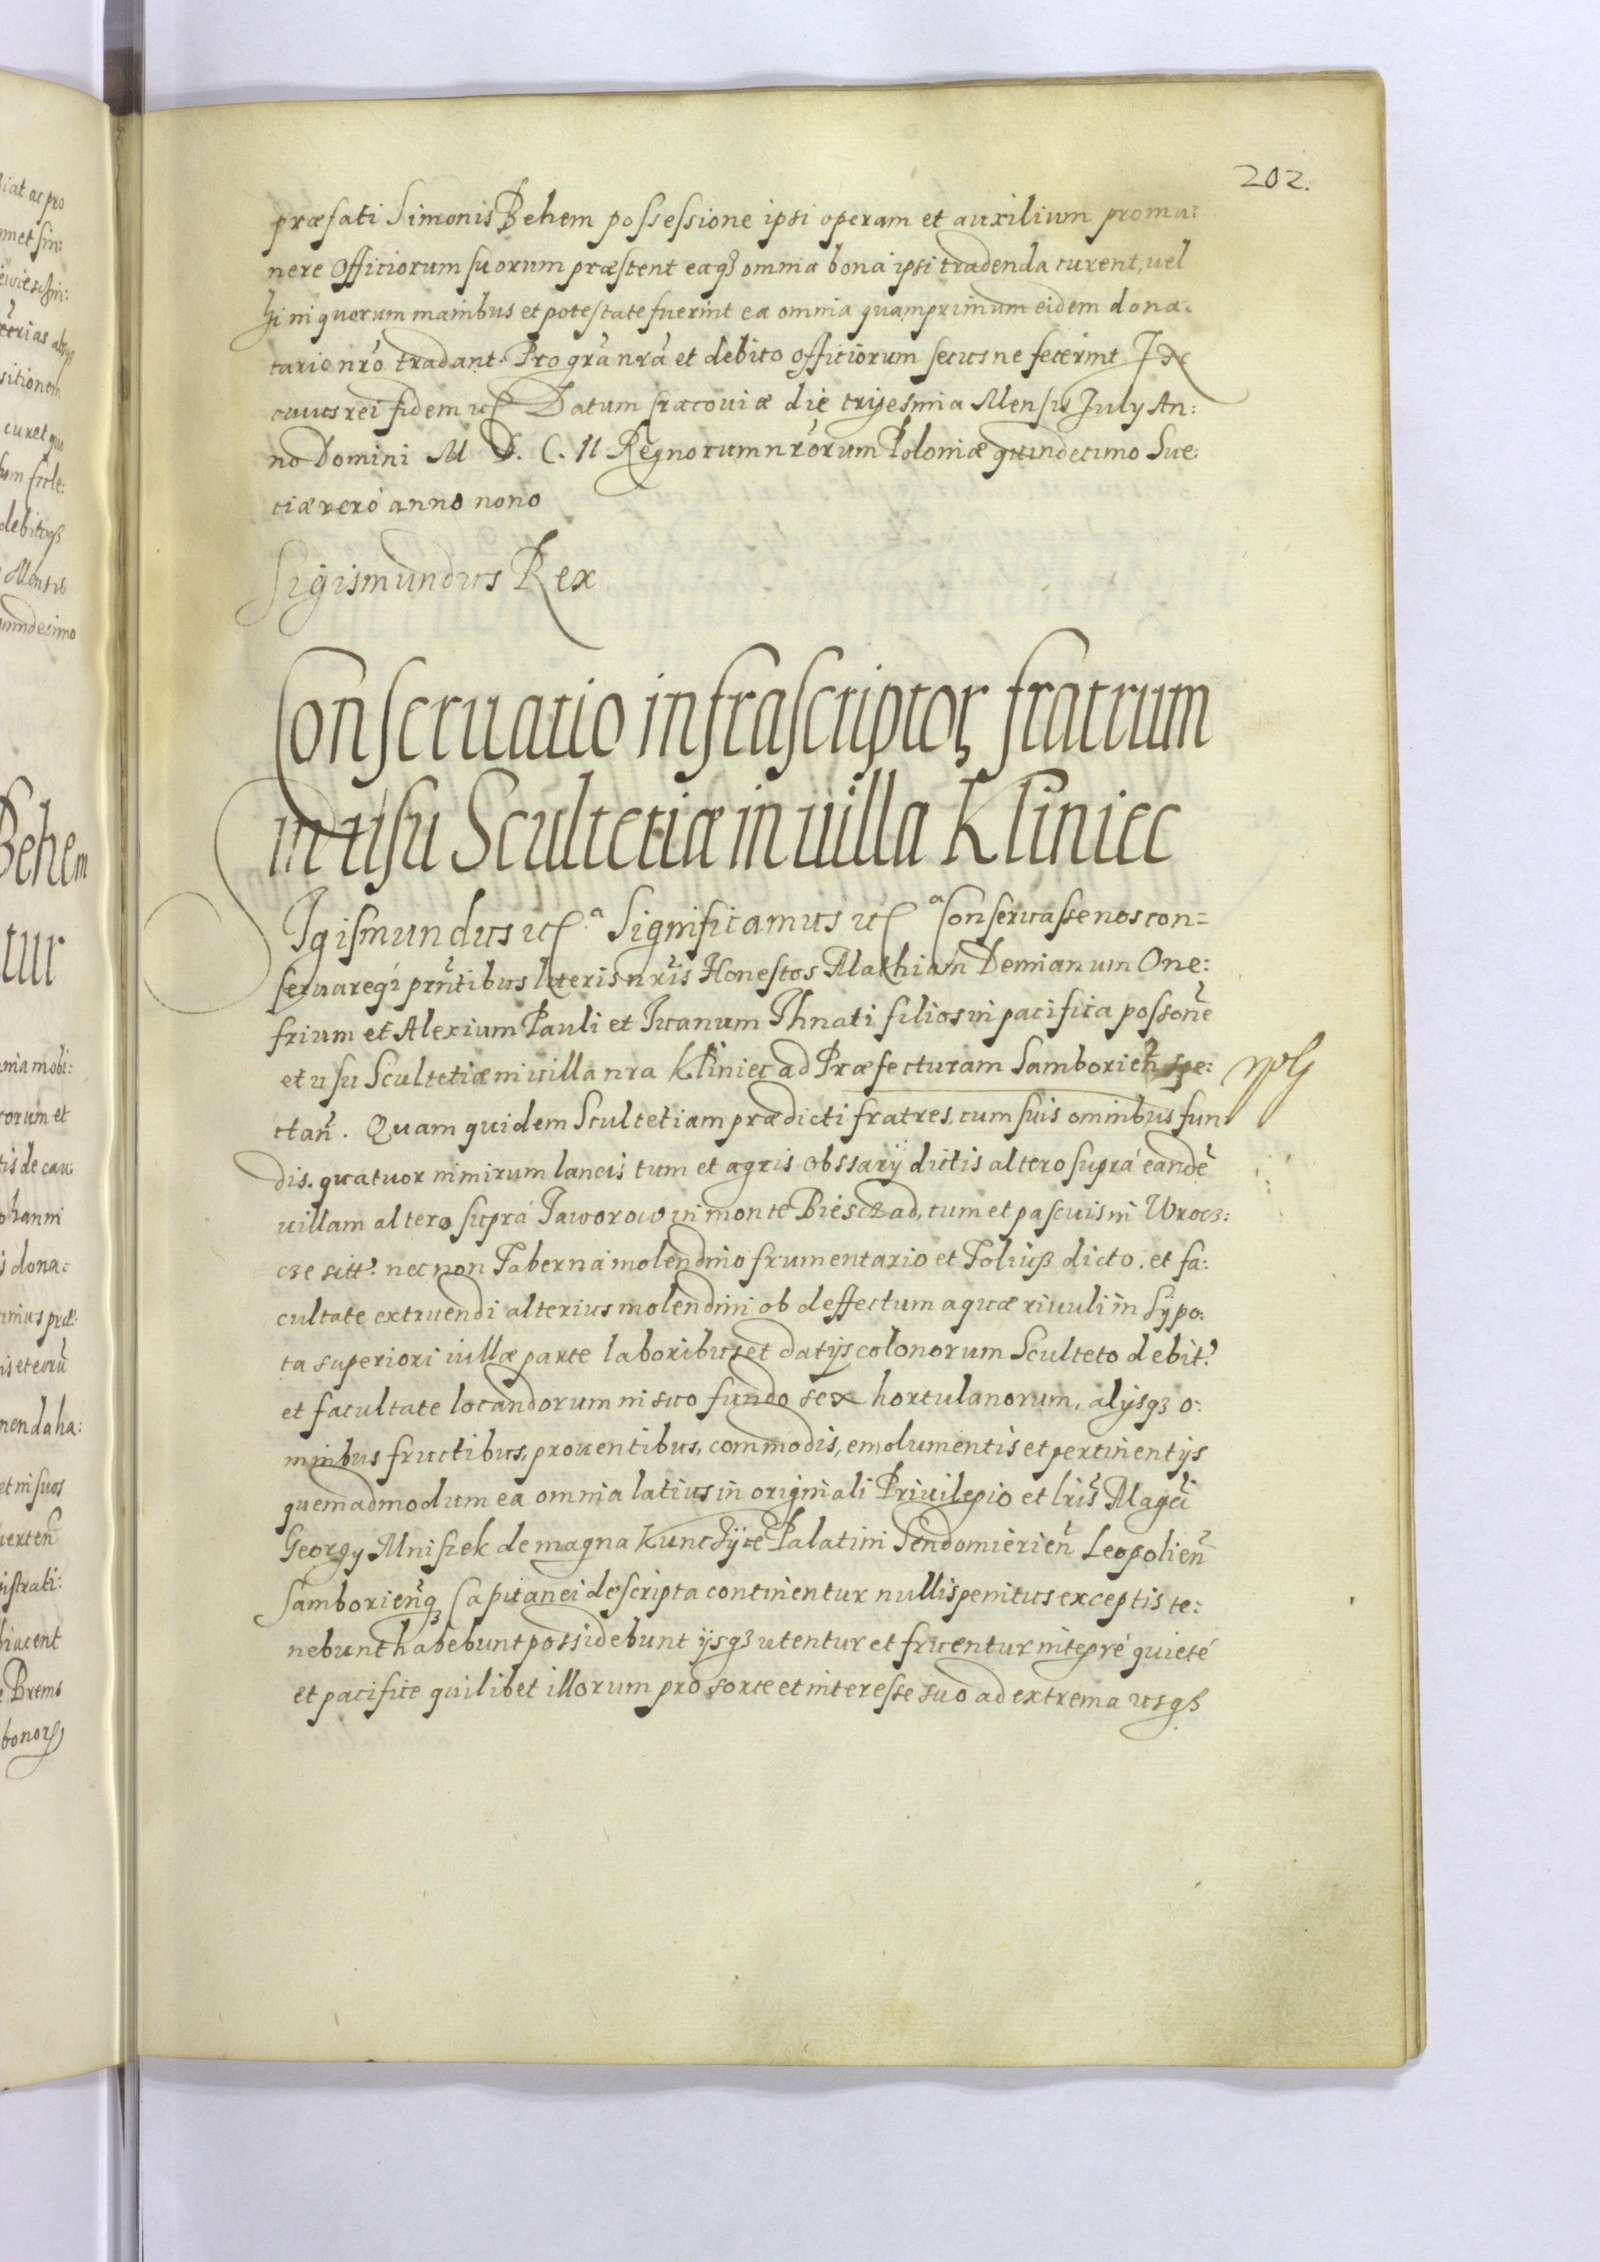 202.
præfati Simonis Behem possessione ipsi operam et auxilium promu:
nere Officiorum suorum præstent eaq3 omnia bona ipsi tradenda curent, uel
hi in quorum manibus et potestate fuerint ea omnia quamprimum eidem dona-
tario nrõ tradant. Pro grã nrã et debito officiorum secus ne fecerint In
cuius rei fidem etc Datum Cracouiæ die trigesima Mensis July An:
no Domini M D. C. II Regnorum nrõrum Poloniæ quindecimo Sue:
tiæ veró anno nono
Sigismundus Rex
Conseruatio infrascriptor fratrum
in usu Scultetiæ in uilla Kliniec
Sigismundus etc. Significamus etc Conseruasse nos con=
seruareq3 prñtibus literis nrĩs Honestos Mathiam Demianum One:
frium et Alexium Pauli et Iwanum Ihnati filios in pacifica possonẽ
et usu Scultetiæ in uilla nra Kliniec ad Præfecturam Samborieñ spe:
ctañ. Quam quidem Scultetiam prædicti fratres, cum suis omnibus fun
dis. quatuor nimirum laneis tum et agris obssary dictis altero suprá eandẽ
uillam altero suprá Jaworow in monte Biesczad, tum et pascuis in Wrocz:
cze sitt. nec non Taberna molendino frumentario et Foliuß dicto. et fa:
cultate extruendi alterius molendini ob deffectum aquæ riuuli in Sypo:
ta superiori uillæ parte laboribus et datys colonorum Sculteto debit.
et facultate locandorum in suo fundo sex hortulanorum, alysq3 o:
mnibus fructibus, prouentibus, commodis, emolumentis et pertinentys
quemadmodum ea omnia latius in originali Priuilegio et lrĩs Magci
Georgy Mnisiek de magna Kunczyce Palatini Sendomierieñ Leopolieñ
Samborieñq3 Capitanei descripta continentur nullis penitus exceptis te:
nebunt habebunt possidebunt ysq3 utentur et fruentur integré quieté
et pacifice quilibet illorum pro sorte et interesse suo ad extrema usq3